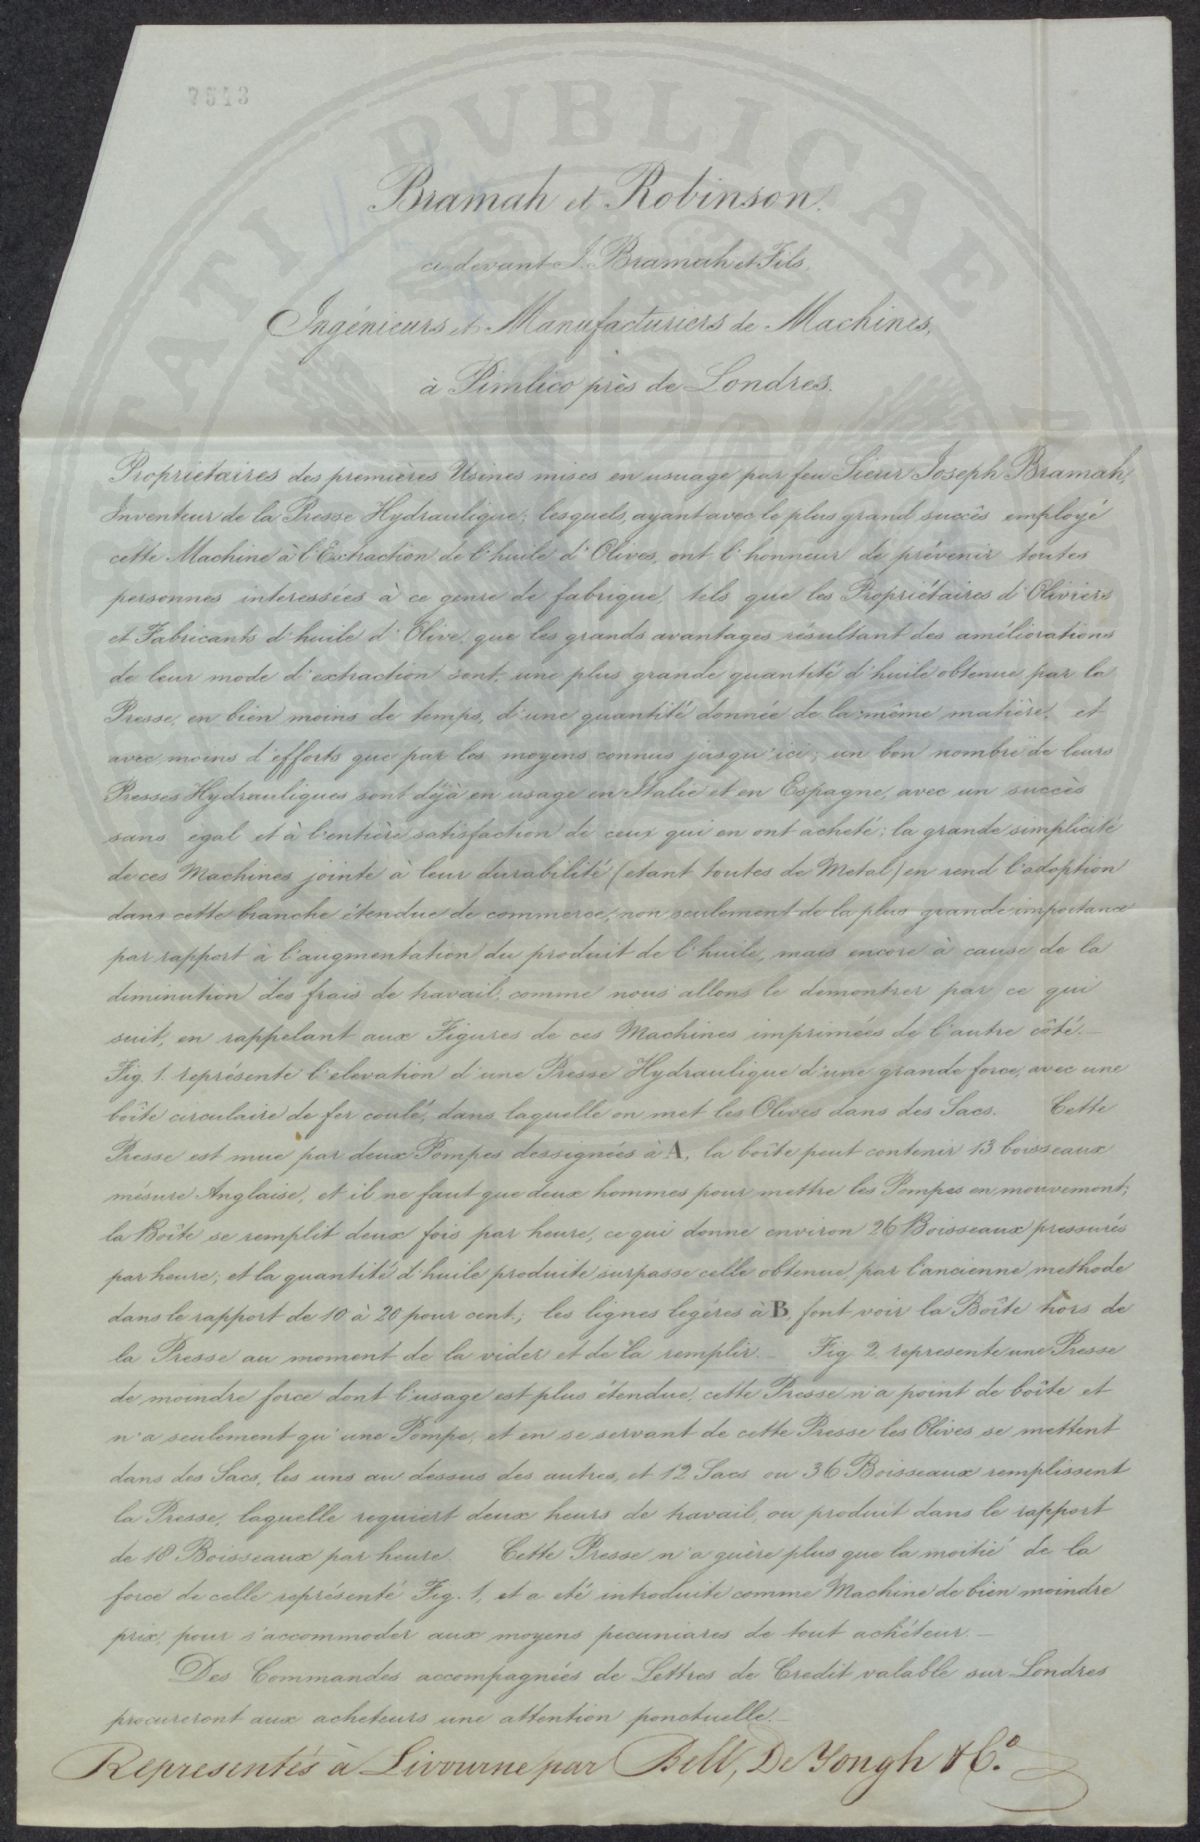 7543
PVBLICAE
Bramah et Robinson.
ci devant J. Bramah et Fils,
Ingénieurs et Manufacturiers de Machines,
à Pimlico près de Londres.
Proprietaires des premières Usines mises en usuage par feu Sieur Joseph Bramah,
Inventeur de la Presse Hydraulique; lesquels, ayant avec le plus grand succès employé
cette Machine à l'Extraction de l'huile d'Olives, ont l'honneur de prévenir toutes
personnes interessées à ce genre de fabrique, tels que les Propriétaires d'Oliviers
et Fabricants d'huile d'Olive, que les grands avantages résultant des améliorations
de leur mode d'extraction sont, une plus grande quantité d'huile obtenue par la
Presse, en bien moins de temps, d'une quantité donnée de la même matière, et
avec moins d'efforts que par les moyens connus jusqu'ici; un bon nombre de leurs
Presses Hydrauliques sont déjà en usage en Italie et en Espagne, avec un succès
sans egal et à l'entière satisfaction de ceux qui en ont acheté; la grande simplicité
de ces Machines jointe à leur durabilité (etant toutes de Metal) en rend l'adoption
dans cette branche étendue de commerce, non seulement de la plus grande importance
par rapport à l'augmentation du produit de l'huile, mais encore à cause de la
diminution des frais de travail, comme nous allons le demontrer par ce qui
suit, en rappelant aux Figures de ces Machines imprimées de l'autre côté.—
Fig. 1. représente l'elevation d'une Presse Hydraulique d'une grande force, avec une
boîte circulaire de fer coulé, dans laquelle on met les Olives dans des Sacs. Cette
Presse est mue par deux Pompes dessignées à A, la boîte peut contenir 13 boisseaux
mésure Anglaise, et il ne faut que deux hommes pour mettre les Pompes en mouvement;
la Boîte se remplit deux fois par heure, ce qui donne environ 26 Boisseaux pressurés
par heure; et la quantité d'huile produite surpasse celle obtenue par l'ancienne methode
dans le rapport de 10 à 20 pour cent; les lignes legéres à B, font voir la Boîte hors de
la Presse au moment de la vider et de la remplir.— Fig. 2 represente une Presse
de moindre force dont l'usage est plus étendue, cette Presse n'a point de boîte et
n'a seulement qu'une Pompe, et en se servant de cette Presse les Olives se mettent
dans des Sacs, les uns au dessus des autres, et 12 Sacs ou 36 Boisseaux remplissent
la Presse, laquelle requiert deux heurs de travail, ou produit dans le rapport
de 18 Boisseaux par heure. Cette Presse n'a guère plus que la moitié de la
force de celle représenté Fig. 1, et a eté introduite comme Machine de bien moindre
prix, pour s'accommoder aux moyens pecuniares de tout achéteur.—
Des Commandes accompagnées de Lettres de Credit valable sur Londres
procureront aux acheteurs une attention ponctuelle.—
Representés à Livourne par Bell, De Yongh & Co.